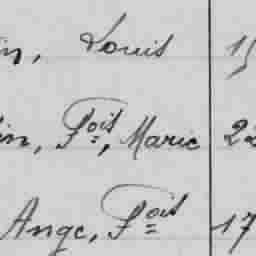 in, Louis 15
in, Fois, Marie 22
Ange, Fois 17